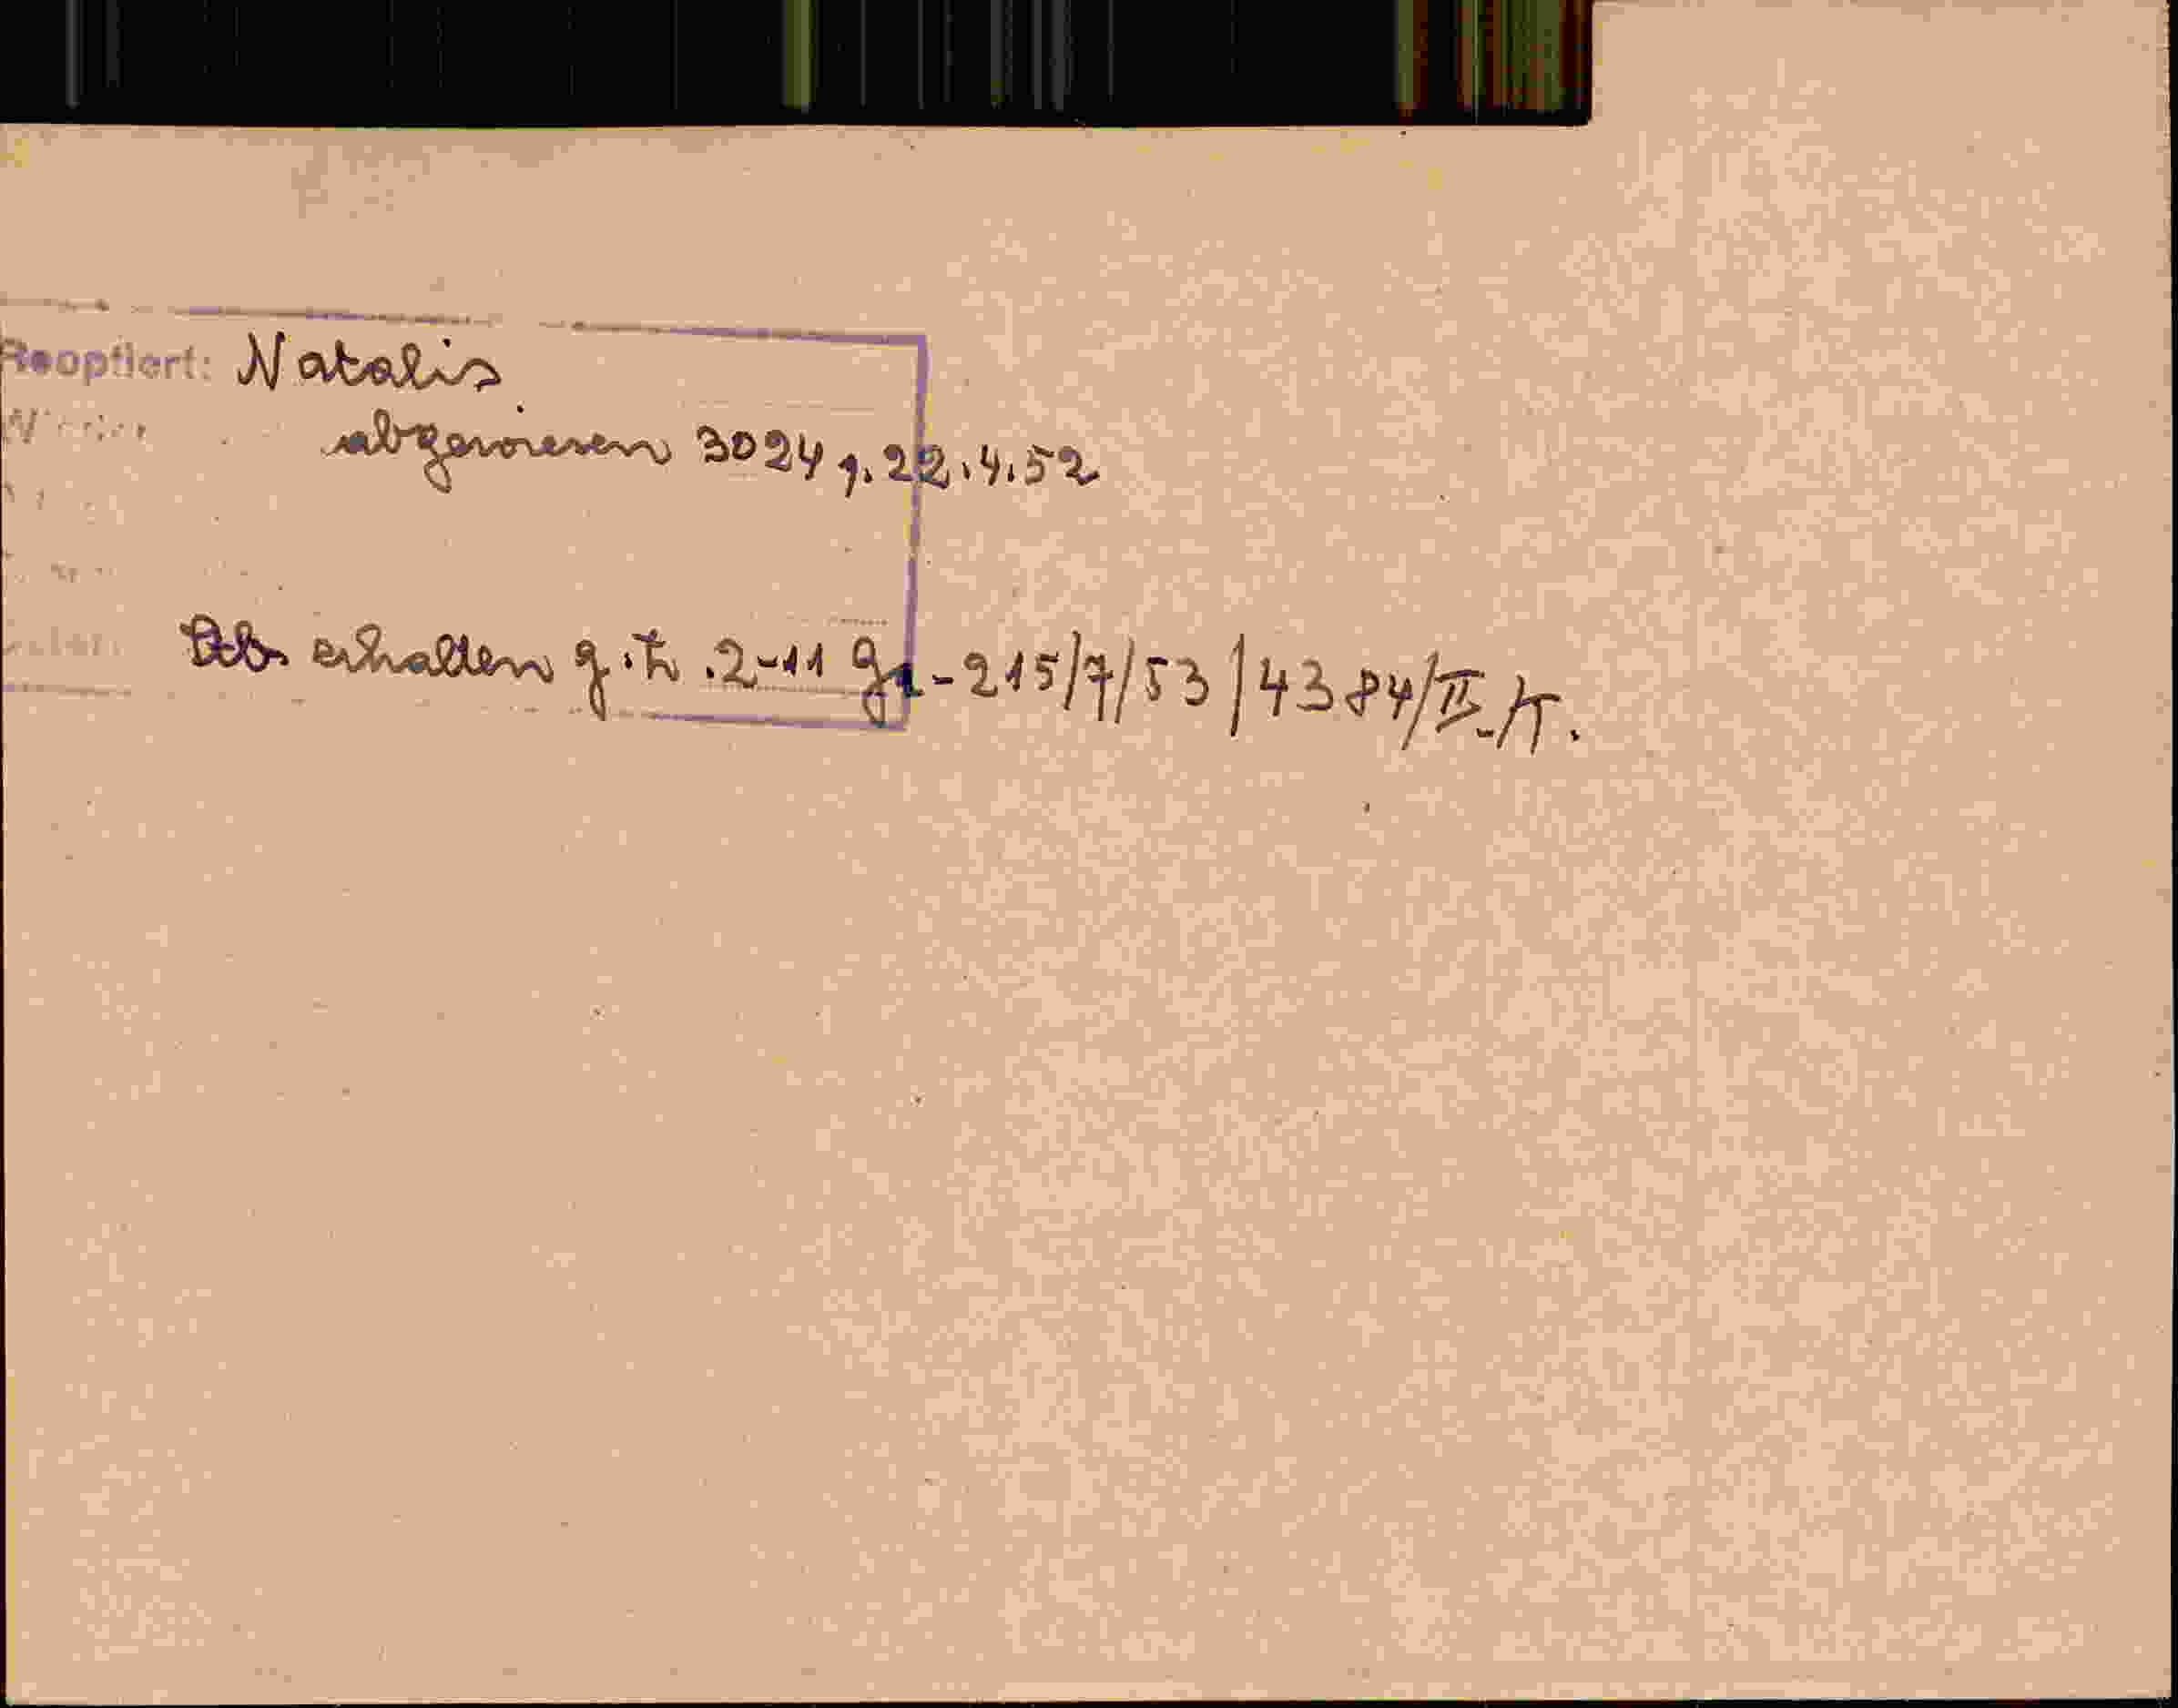 Reoptiert: Natalis
abgewiesen 3024 v. 22.4.52
erhalten g. h. 2-11 Gr - 215/7/53 / 4384/II-/T.